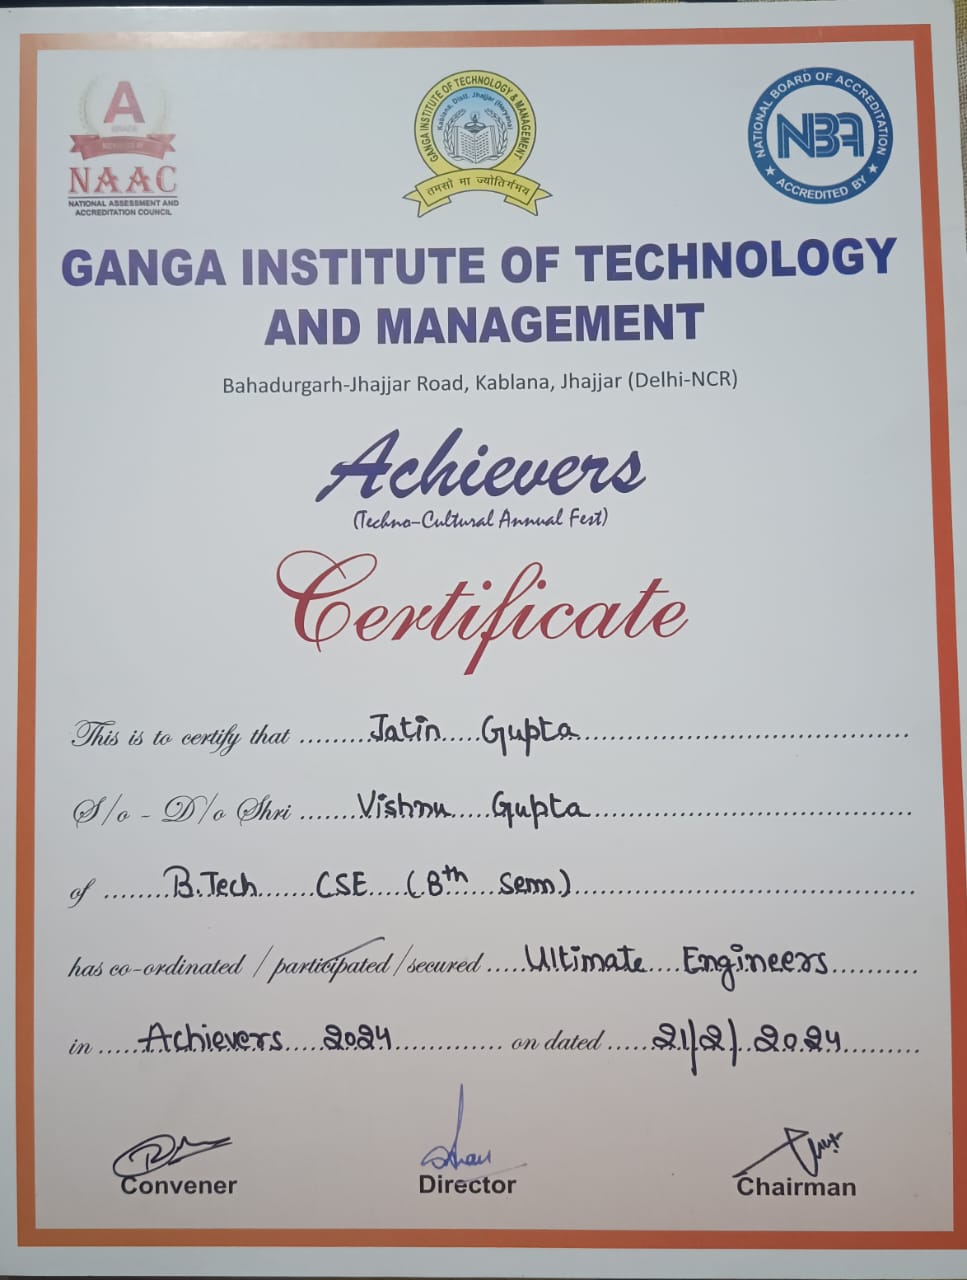 A
GRADE
ACCREDITED BY
NAAC
NATIONAL ASSESSMENT AND
ACCREDITATION COUNCIL
GANGA INSTITUTE OF TECHNOLOGY & MANAGEMENT
Kablana, Distt. Jhajjar (Haryana)
तमसो मा ज्योतिर्गमय
NATIONAL BOARD OF ACCREDITATION
NBA
★ ACCREDITED BY ★
GANGA INSTITUTE OF TECHNOLOGY
AND MANAGEMENT
Bahadurgarh-Jhajjar Road, Kablana, Jhajjar (Delhi-NCR)
Achievers
(Techno-Cultural Annual Fest)
Certificate
This is to certify that Jatin Gupta
S/o - D/o Shri Vishnu Gupta
of B.Tech CSE (8th Sem)
has co-ordinated / participated / secured Ultimate Engineers
in Achievers 2024 on dated 21/2/2024
Convener Director Chairman